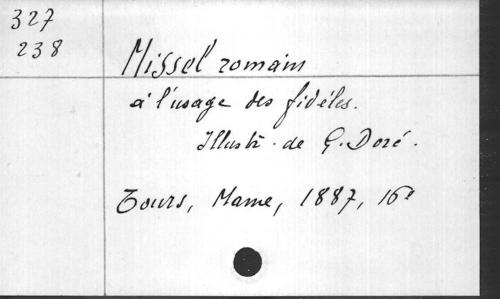 327
238
Missel romain
à l'usage des fidéles.
Illustr. de G. Doré.
Tours, Mame, 1887, 16°